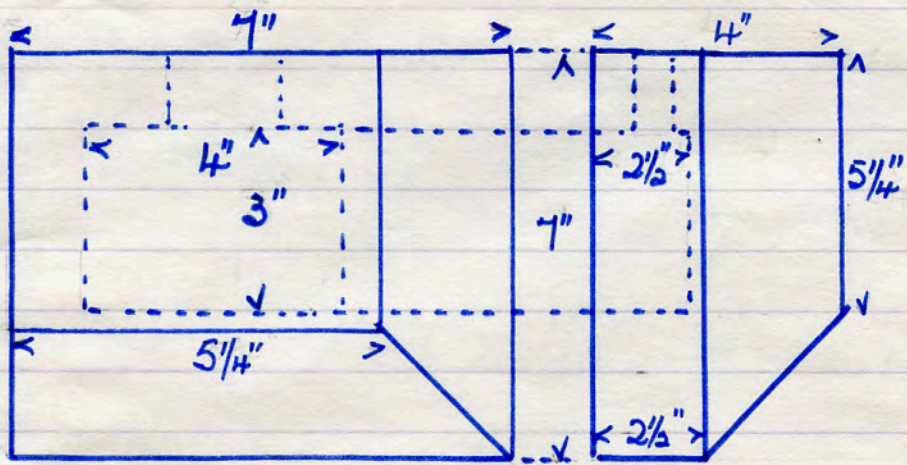 7" 4"
4" 2½" 5¼"
3" 7"
5¼" 2½"